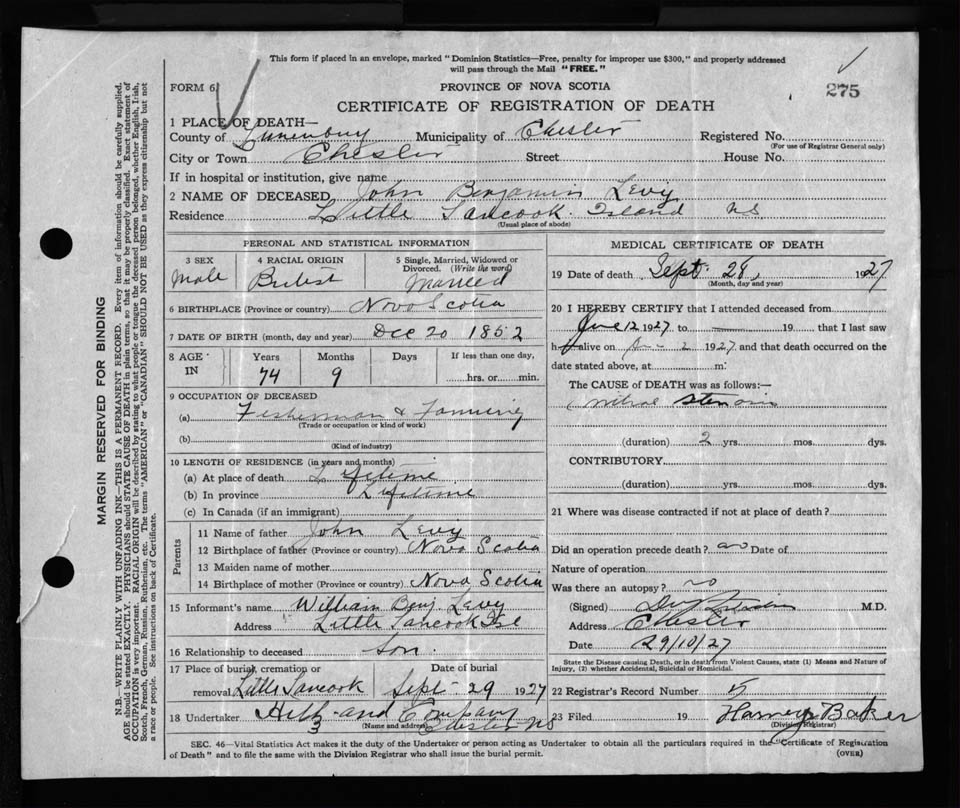 This form if placed in an envelope, marked "Dominion Statistics—Free, penalty for improper use $300," and properly addressed
will pass through the Mail "FREE."
FORM 6
PROVINCE OF NOVA SCOTIA
275
CERTIFICATE OF REGISTRATION OF DEATH
1 PLACE OF DEATH—
County of Lunenburg Municipality of Chester Registered No.
(For use of Registrar General only)
City or Town Chester Street House No.
If in hospital or institution, give name
2 NAME OF DECEASED John Benjamin Levy
Residence Little Tancook Island NS
(Usual place of abode)
PERSONAL AND STATISTICAL INFORMATION
3 SEX 4 RACIAL ORIGIN 5 Single, Married, Widowed or
Divorced. (Write the word)
Male British Married
6 BIRTHPLACE (Province or country) Nova Scotia
7 DATE OF BIRTH (month, day and year) Dec 20 1852
8 AGE IN Years Months Days If less than one day,
74 9 hrs. or min.
9 OCCUPATION OF DECEASED
(a) Fisherman & Farming
(Trade or occupation or kind of work)
(b)
(Kind of industry)
10 LENGTH OF RESIDENCE (in years and months)
(a) At place of death Lifetime
(b) In province Lifetime
(c) In Canada (if an immigrant)
Parents
11 Name of father John Levy
12 Birthplace of father (Province or country) Nova Scotia
13 Maiden name of mother
14 Birthplace of mother (Province or country) Nova Scotia
15 Informant's name William Benj. Levy
Address Little Tancook Isl
16 Relationship to deceased son
17 Place of burial, cremation or Date of burial
removal Little Tancook Sept 29 1927
18 Undertaker and Company
(Name and address) Chester NS
MEDICAL CERTIFICATE OF DEATH
19 Date of death Sept. 28, 1927
(Month, day and year)
20 I HEREBY CERTIFY that I attended deceased from
June 12 1927 to 19 that I last saw
h alive on 2 1927 and that death occurred on the
date stated above, at m.
The CAUSE of DEATH was as follows:—
mitral stenosis
(duration) 2 yrs. mos. dys.
CONTRIBUTORY
(duration) yrs. mos. dys.
21 Where was disease contracted if not at place of death?
Did an operation precede death? no Date of
Nature of operation
Was there an autopsy? no
(Signed) M.D.
Address Chester
Date 29/10/27
State the Disease causing Death, or in death from Violent Causes, state (1) Means and Nature of
Injury, (2) whether Accidental, Suicidal or Homicidal.
22 Registrar's Record Number 5
23 Filed 19 Harvey Baker
(Division Registrar)
SEC. 46—Vital Statistics Act makes it the duty of the Undertaker or person acting as Undertaker to obtain all the particulars required in the "Certificate of Registration
of Death" and to file the same with the Division Registrar who shall issue the burial permit.
(OVER)
MARGIN RESERVED FOR BINDING
N.B.—WRITE PLAINLY WITH UNFADING INK—THIS IS A PERMANENT RECORD. Every item of information should be carefully supplied.
AGE should be stated EXACTLY. PHYSICIANS should STATE CAUSE OF DEATH in plain terms, so that it may be properly classified. Exact statement of
OCCUPATION is very important. RACIAL ORIGIN will be described by stating to what people or tongue the deceased person belonged, whether English, Irish,
Scotch, French, German, Russian, Ruthenian, etc. The terms "AMERICAN" or "CANADIAN" SHOULD NOT BE USED as they express citizenship but not
a race or people. See instructions on back of Certificate.